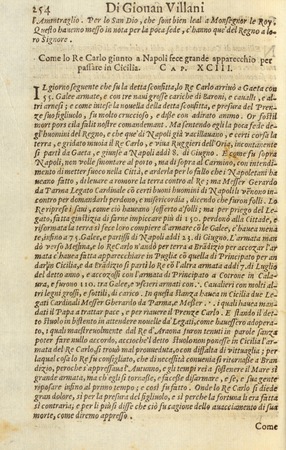 254 Di Giovan Villani
l'Ammiraglio. Per lo San Dio, che sont bien leal a Monsegnor le Roy.
Questo hauemo messo in nota per la poca fede, c'hanno que' del Regno a lo-
ro Signore.
Come lo Re Carlo giunto a Napoli fece grande apparecchio per
passare in Cicilia. CAP. XCIII.
IL giorno seguente che fu la detta sconfitta, lo Re Carlo arriuò a Gaeta con
55. Galee armate, e con tre naui grosse cariche di Baroni, e caualli, e al-
tri arnesi; e come intese la nouella della detta sconfitta, e presura del Pren-
ze suo figliuolo, fu molto crucciofo, e disse con adirato animo. Or fosti
mort pors cilà falit nostre comandemant. Ma sentendo egli la poca fede de-
gl'huomini del Regno, e che que' di Napoli già vacillauano, e certi corsa la
terra, e gridato muoia il Re Carlo, e viua Ruggieri dell'Oria, incontanente
si partì da Gaeta, e giunse a Napoli adì 8. di Giugno. E come fu sopra
Napoli, non volle smontare al porto, ma di sopra al Carmino, con intendi-
mento di metter fuoco nella Città, e arderla per lo fallo che i Napoletani ha
meano fatto, di leuare a romore la terra contro al Re; ma Messer Gerardo
da Parma Legato Cardinale cò certi buoni huomini di Napoli vennono in-
contro per domandarli perdono, e misericordia, dicendo che furon folli. Lo
Re riprese i saui, come ciò haueano sofferto a' folli; ma per priego del Le-
gato, fatta giustitia di farne impiccare più di 150. perdonò alla Cittade, e
riformata la terra si fece loro compiere d'armare cò le Galee, c'hauea mena
te, infino a 75. Galee, e partissi di Napoli addì 23. di Giugno. L'armata man
dò verso Messina, e lo Re Carlo n'andò per terra a Bràdizio per accozzar l'ar
mata, c'hauea fatta apparecchiare in Puglia cò quella di Principato per an
dar in Cicilia, e da Bràdizio si partì lo Re cò l'altra armata adì 7. di Luglio
del detto anno, e accozzossi con l'armata di Principato a Cotrone in Cala-
ura, e furono 110. tra Galee, e vscieri armati con . . Cauallieri con molti al-
tri legni grossi, e sottili, di carico. In questa stanza hauea in Cicilia due Le-
gati Cardinali Messer Gherardo da Parma, e Messer . . i quali hauea man-
dati il Papa a trattar pace, e per riauere il Prenze Carlo. E stando il det-
to Huolo in bistento in attendere nouelle da' Legati, come hauessero adopera-
to, i quali maestreuolmente dal Re d'Araona furon tenuti in parole sanza
poter fare nullo accordo, ancioche'l detto Stuolo non ponesse in Cicilia; l'ar-
mata del Re Carlo si trouò mal proueduta, e con diffalta di vittuaglia; per
laqual cosa lo Re fu consigliato, che di necessità conuenia si ritornasse a Bran
dizio, peroche s'appressaua l'Autunno, e gli tempi rei a sostenere il Mare sì
grande armata, ma ch'egli si tornasse, e facesse disarmare, e se, e sua gente
riposare infino al primo tempo; e così fu fatto. Onde lo Re Carlo si diede
gran dolore, sì per la presura del figliuolo, e sì perche la fortuna li era fatta
sì contraria; e per li più si disse che ciò fu cagione dello auacciamento di sua
morte, come diremo appresso.
Come